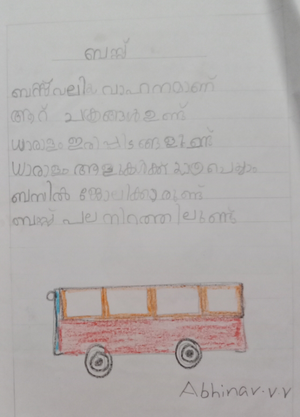 ബസ്സ്
ബസ്സ് വലിയ വാഹനമാണ്
ആറ് ചക്രങ്ങൾ ഉണ്ട്
ധാരാളം ഇരിപ്പിടങ്ങളുണ്ട്
ധാരാളം ആളുകൾക്ക് യാത്ര ചെയ്യാം
ബസിൽ ജോലിക്കാരുണ്ട്
ബസ്സ് പല നിറത്തിലുണ്ട്
Abhinav.v.v